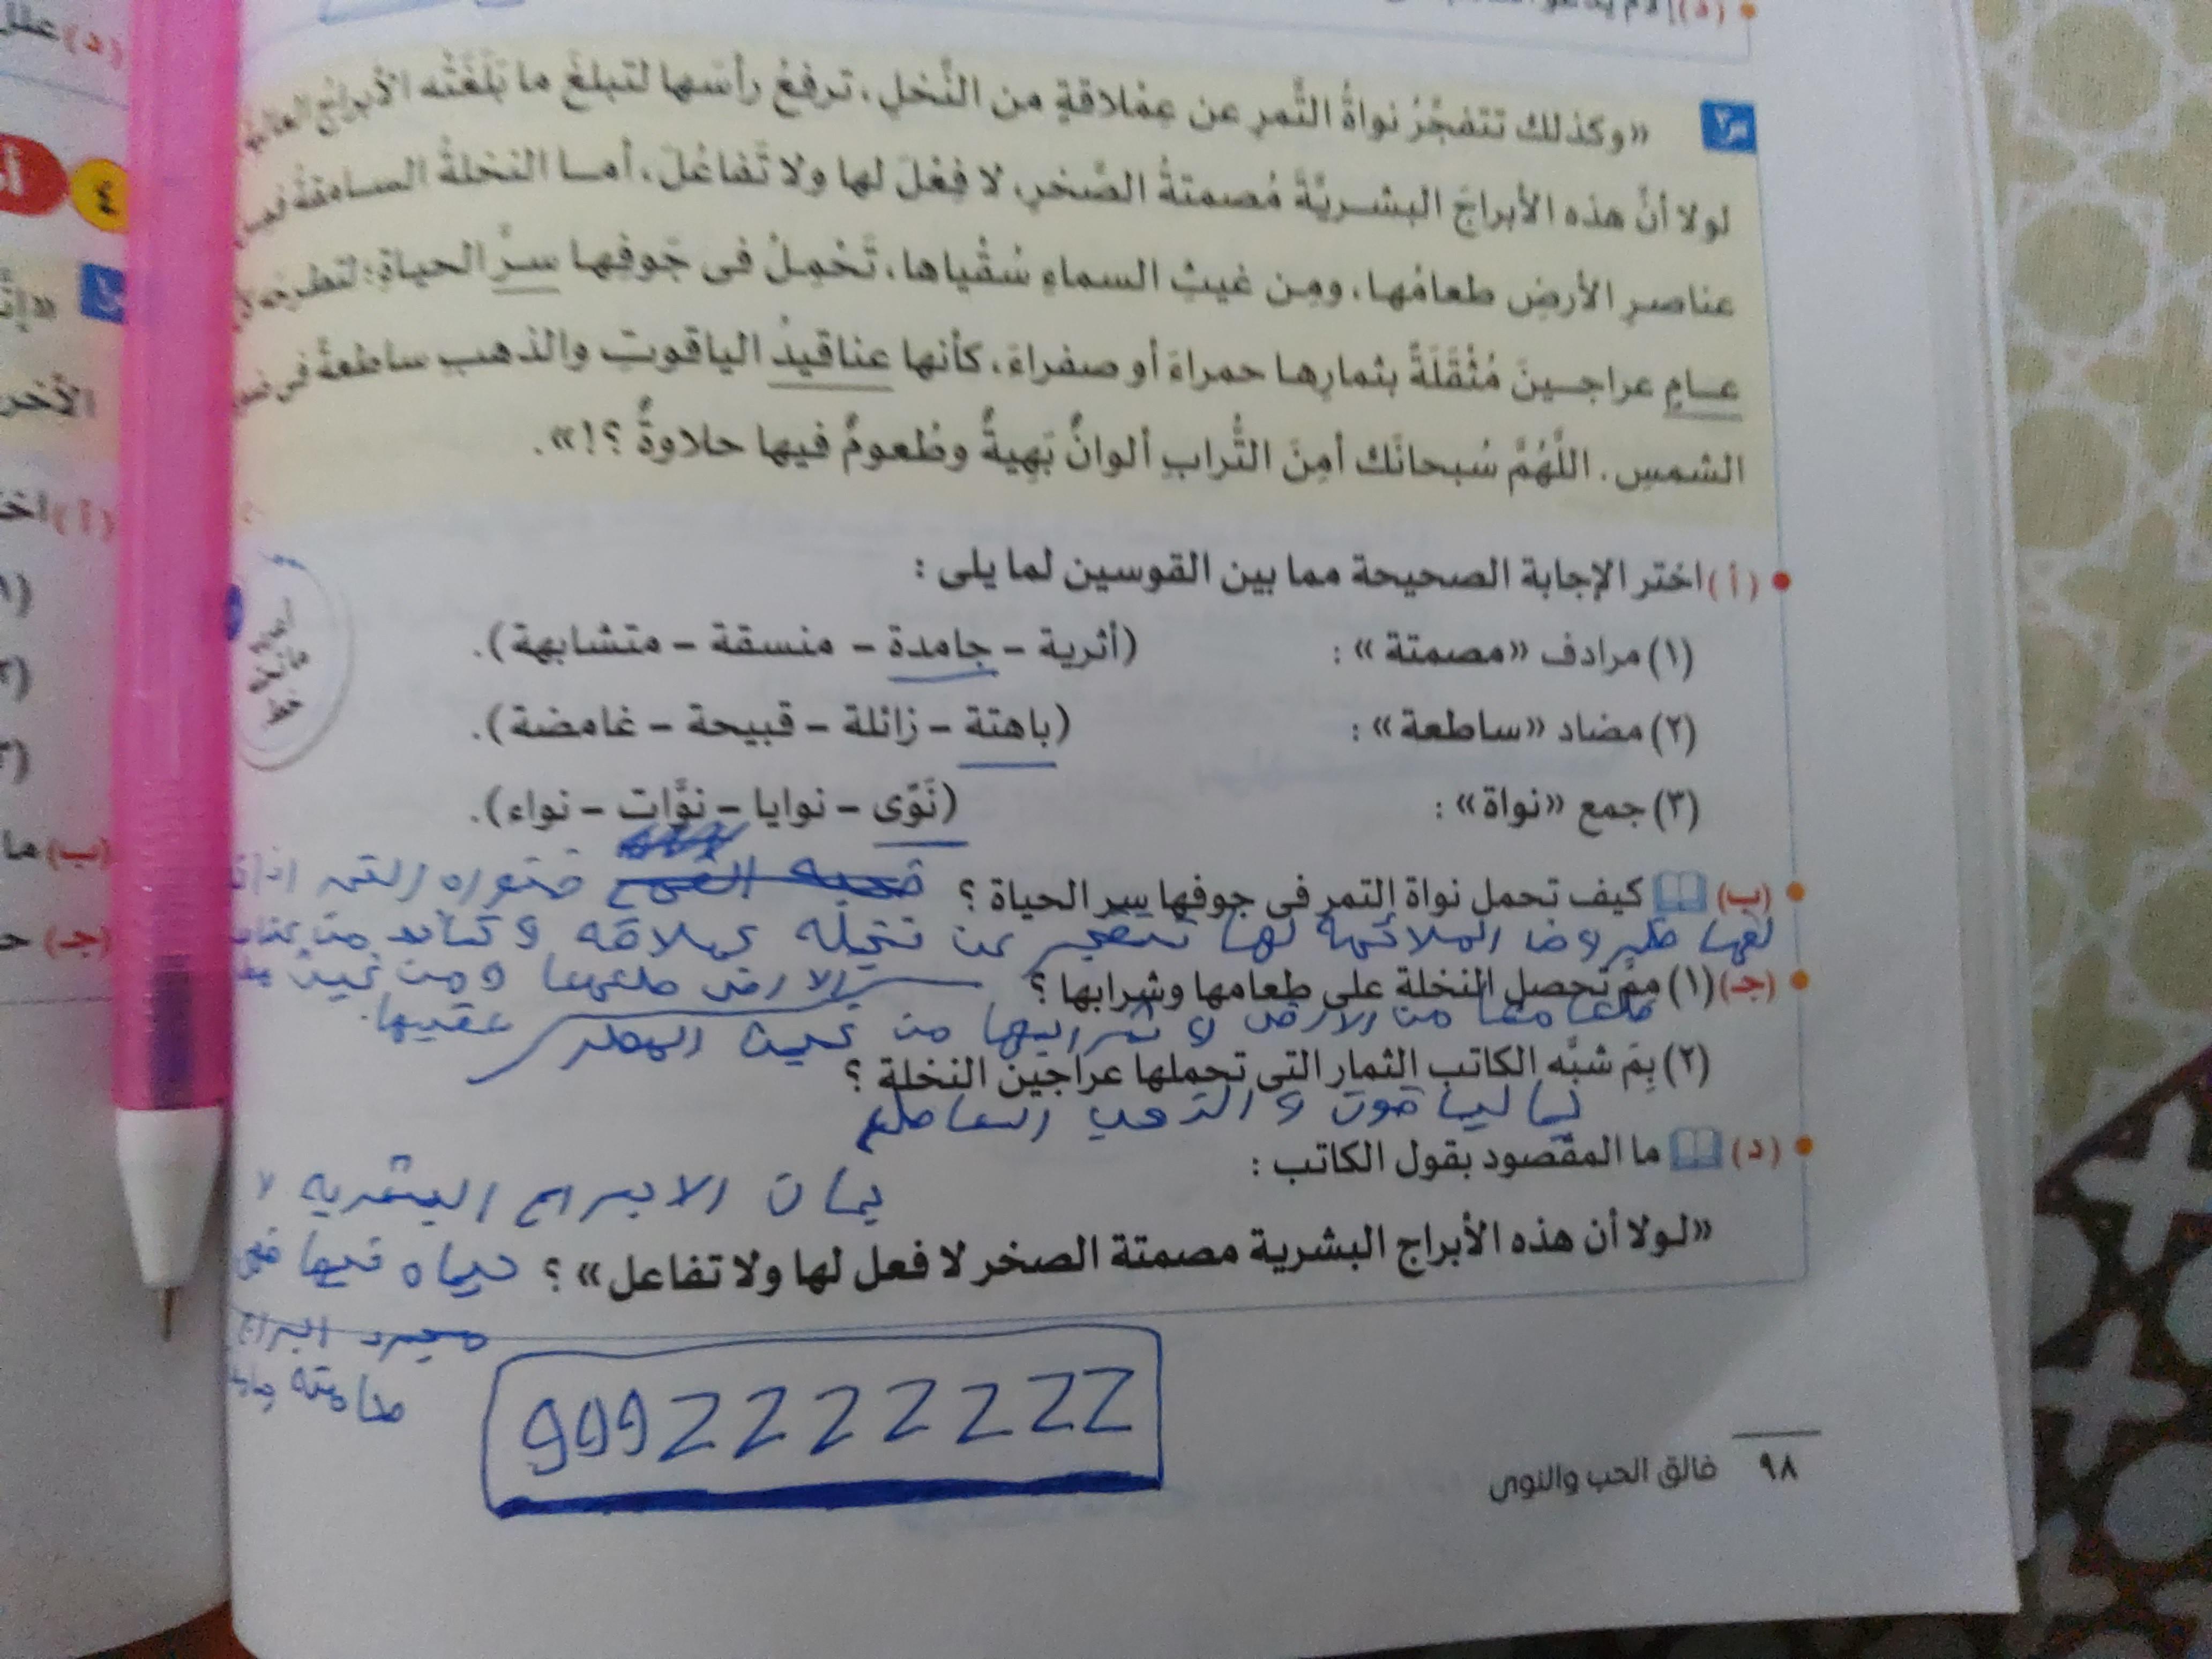 س٢ «وكذلك تتفجَّرُ نواةُ التَّمرِ عن عِمْلاقةٍ من النَّخلِ، ترفعُ رأسَها لتبلغَ ما بَلَغَتْه الأبراجُ العالية
لولا أنَّ هذه الأبراجَ البشريَّةَ مُصمتةُ الصَّخرِ، لا فِعْلَ لها ولا تَفاعُلَ، أما النخلةُ السامقةُ
عناصرِ الأرضِ طعامُها، ومِن غيثِ السماءِ سُقْياها، تَحْمِلُ فى جَوفِها سرَّ الحياةِ؛ لتطرحَه
عامٍ عراجينَ مُثْقَلَةً بثمارِها حمراءَ أو صفراءَ، كأنها عناقيدُ الياقوتِ والذهبِ ساطعةً فى
الشمسِ. اللَّهُمَّ سُبحانَك أمِنَ التُّرابِ ألوانٌ بَهِيةٌ وطُعومٌ فيها حلاوةٌ ؟!».
(أ) اختر الإجابة الصحيحة مما بين القوسين لما يلى :
(١) مرادف «مصمتة» : (أثرية - جامدة - منسقة - متشابهة).
(٢) مضاد «ساطعة» : (باهتة - زائلة - قبيحة - غامضة).
(٣) جمع «نواة» : (نَوًى - نوايا - نوَّات - نواء).
(ب) كيف تحمل نواة التمر فى جوفها سر الحياة ؟
لها تتفجر عن نخله عملاقه و
(جـ) (١) ممَّ تحصل النخلة على طعامها وشرابها ؟ الارض طعمها ومن غيث
طعامها من الارض و شرابها من غيث المطر
(٢) بِمَ شبَّه الكاتب الثمار التى تحملها عراجين النخلة ؟
باليا قوت و الذهب الساطع
(د) ما المقصود بقول الكاتب :
بان الابراج البشريه لا
«لولا أن هذه الأبراج البشرية مصمتة الصخر لا فعل لها ولا تفاعل» ؟ حياه فيها فهى
مجرد ابراج
صامته
9992222222
٩٨ فالق الحب والنوى
(د) علل
٤
«إنَّ
الأخر
(أ) اخ
(ب) ما
(جـ)